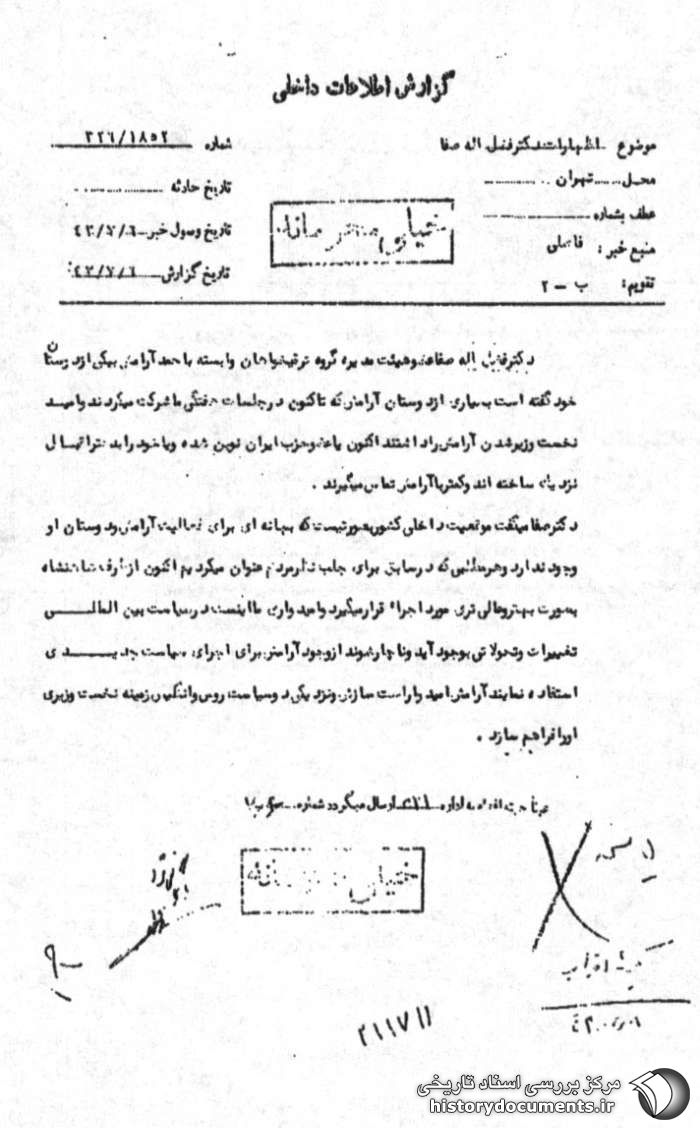 گزارش اطلاعات داخلی
موضوع اظهارات دکتر فضل اله صفا
محل تهران
عطف بشماره
منبع خبر: فاضلی
تقویم: ب - ۲
شماره ۳۲۶/۱۸۵۲
تاریخ حادثه
تاریخ وصول خبر ۴۳/۷/۶
تاریخ گزارش ۴۳/۷/۶
خیلی محرمانه
دکتر فضل اله صفا عضو هیئت مدیره گروه ترقیخواهان وابسته با حمد آرامش بیکی از دوستان
خود گفته است بسیاری از دوستان آرامش که تاکنون در جلسات هفتگی ما شرکت میکردند وامید
نخست وزیر شدن آرامش را داشتند اکنون یا عضو حزب ایران نوین شده ویا خود را بدستراتیال
نزدیک ساخته اند وکمتر با آرامش تماس میگیرند .
دکتر صفا میگفت موقعیت داخلی کشور بصورتیست که بهانه ای برای فعالیت آرامش ودوستان او
وجود ندارد وهر مطلبی که در سابق برای جلب نظر مردم عنوان میکردیم اکنون از طرف شاهنشاه
بصورت بهتر وعالی تری مورد اجراء قرار میگیرد وامیدواری ما اینست در سیاست بین المللی
تغییرات وتحولاتی بوجود آید وناچار شوند از وجود آرامش برای اجرای سیاست جدیدی
استفاده نمایند آرامش امیدوار است سازش ونزدیکی دو سیاست روس وانگلیس زمینه نخست وزیری
او را فراهم سازد .
به اداره ارسال میگردد شماره
خیلی محرمانه
۲۱۱۷۱۱
مرکز بررسی اسناد تاریخی
historydocuments.ir